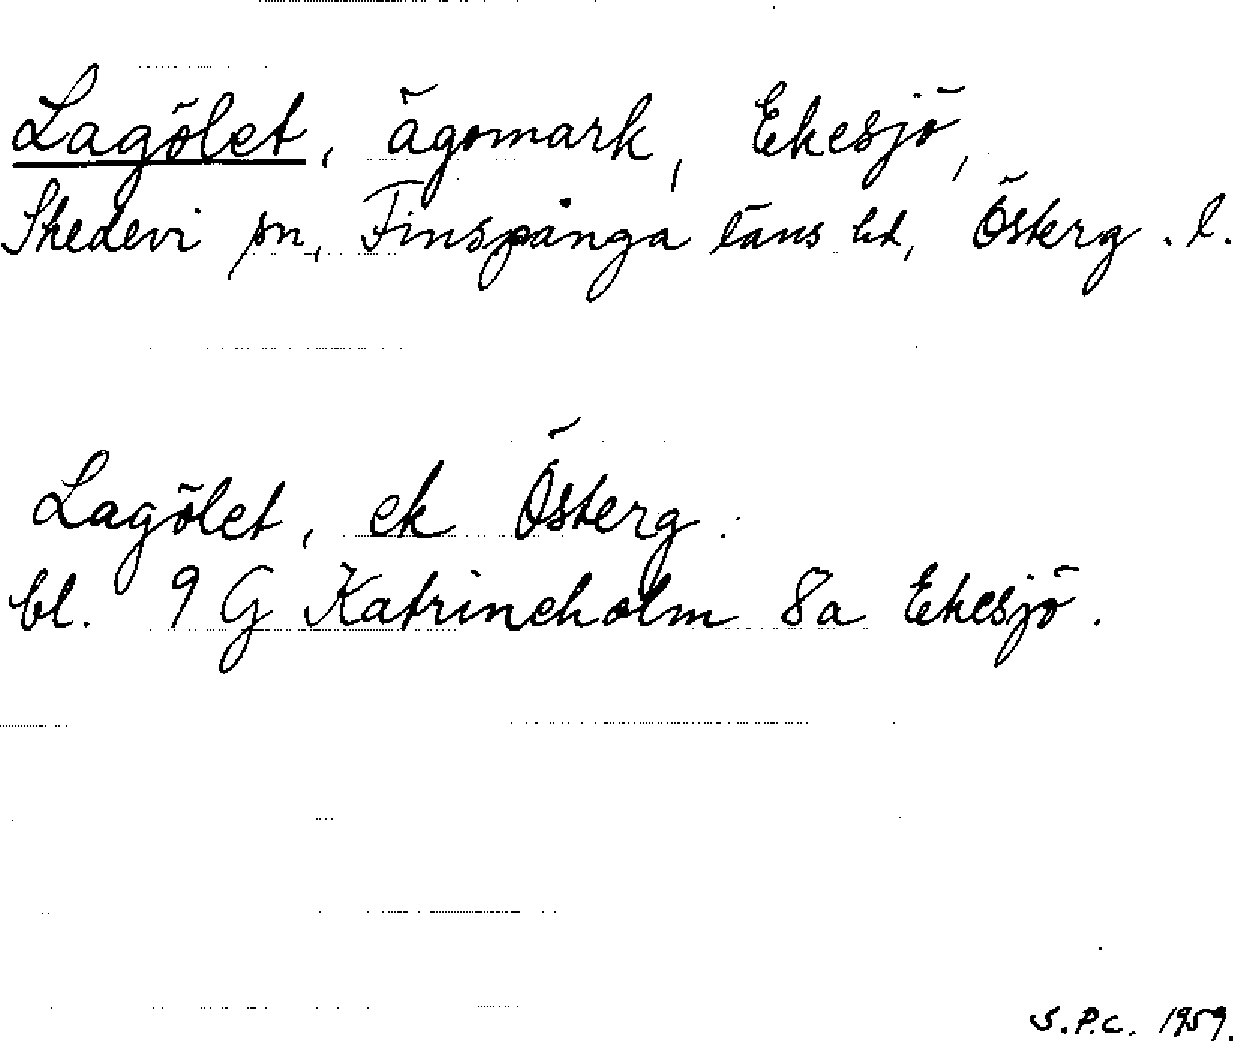 Lagölet, ägomark, Ekesjö,
Skedevi sn, Finspånga läns hd, Österg. l.
Lagölet, ek Österg.
bl. 9 G Katrineholm 8a Ekesjö.
S.P.C. 1959.